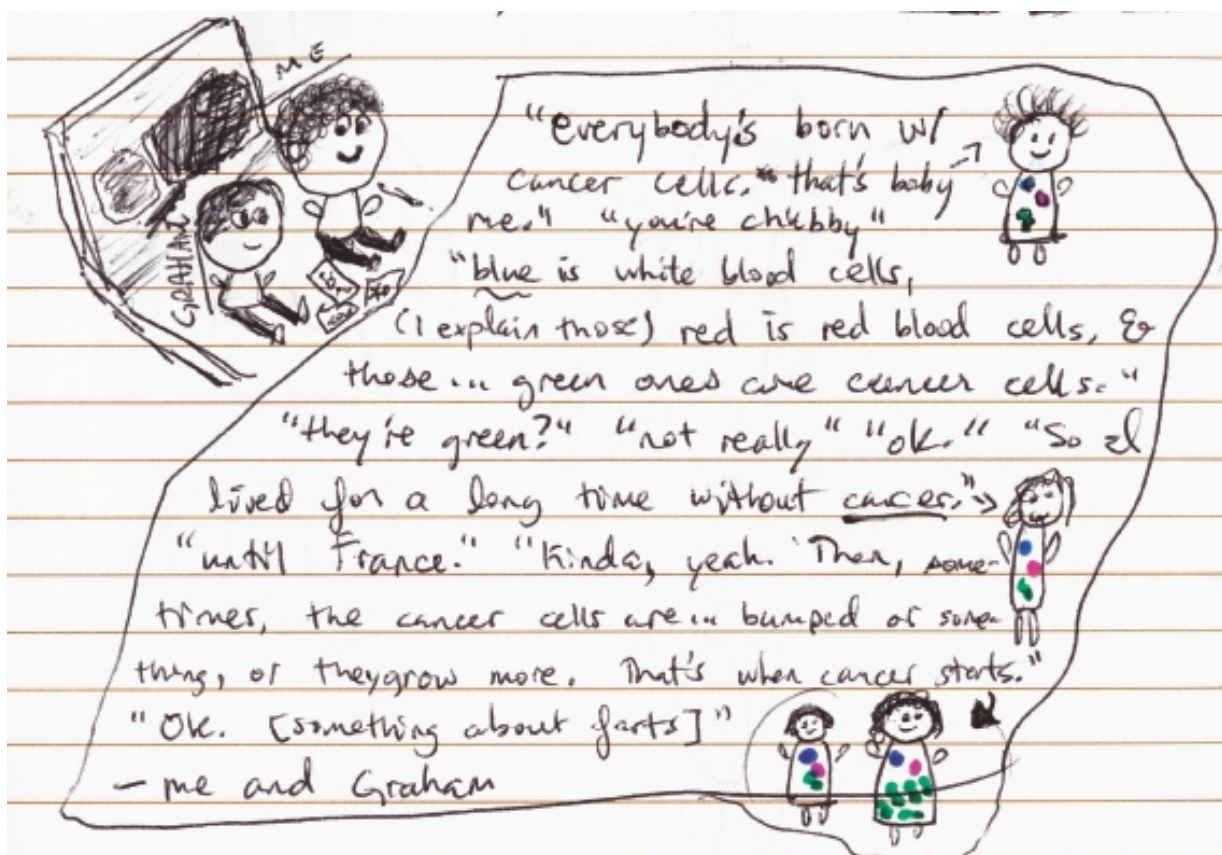 ME
GRAHAM
"everybody's born w/
cancer cells. that's baby
me." "you're chubby"
"blue is white blood cells,
(I explain those) red is red blood cells, &
those... green ones are cancer cells."
"they're green?" "not really" "ok." "So I
lived for a long time without cancer."
"until France." "Kinda, yeah. Then, some-
times, the cancer cells are... bumped or some-
thing, or they grow more. That's when cancer starts."
"Ok. [something about farts]"
- me and Graham